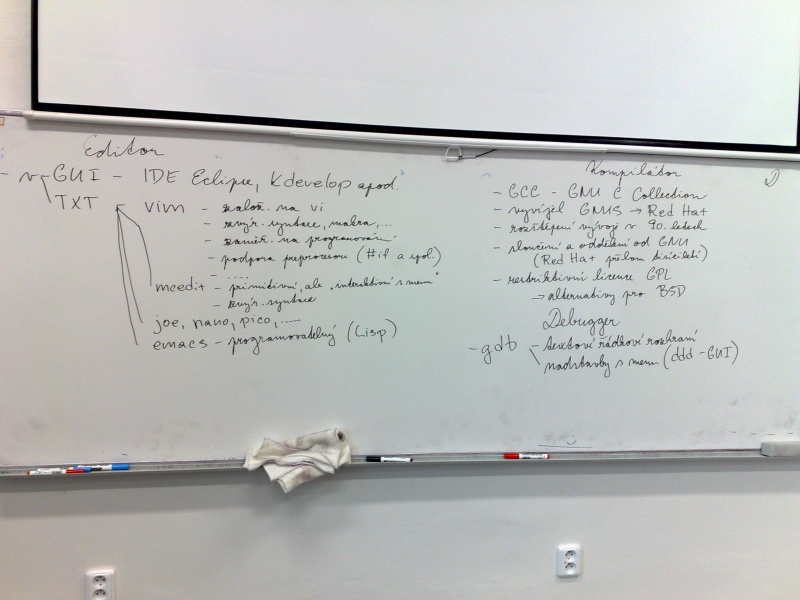 Editor
- v GUI - IDE Eclipse, Kdevelop apod.
TXT
vim - založ. na vi
- zvýr. syntaxe, makra,...
- zaměř. na programování
- podpora preprocesoru (#if a spol.)
- ....
mcedit - primitivní, ale "interaktivní s menu"
- zvýr. syntaxe
joe, nano, pico, .....
emacs - programovatelný (Lisp)
Kompilátor
- GCC - GNU C Collection
- vyvíjel GNUS → Red Hat
- rozštěpení vývoje v 90. letech
- sloučení a oddělení od GNU
(Red Hat přelom tisíciletí)
- restriktivní licence GPL
→ alternativy pro BSD
Debugger
- gdb - textové řádkové rozhraní
nadstavby s menu (ddd - GUI)